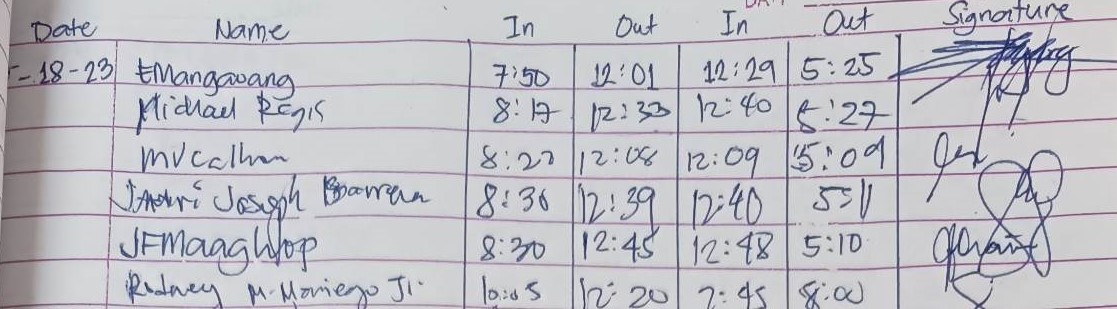 Date Name In Out In Out Signature
-18-23 EMangawang 7:50 12:01 12:29 5:25
Michael REgis 8:17 12:33 12:40 5:27
8:27 12:08 12:09 5:09
Joseph 8:36 12:39 12:40 5511
JFMaaghop 8:30 12:45 12:48 5:10
Rodney M. Moniego Jr. 10:05 12:20 2:45 8:00